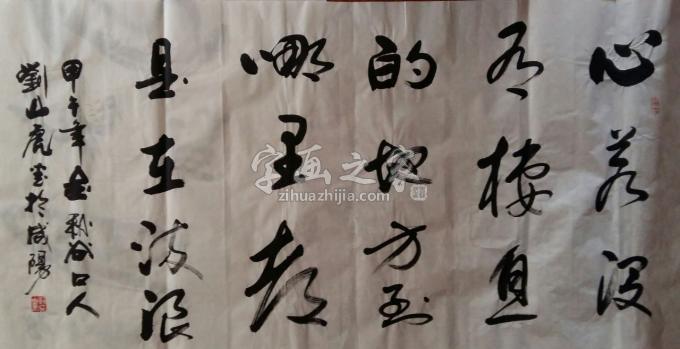 心若没
有栖息
的地方到
哪里都
是在流浪
甲午年金秋谷口人
劉山虎書於咸陽
字画之家
zihuazhijia.com